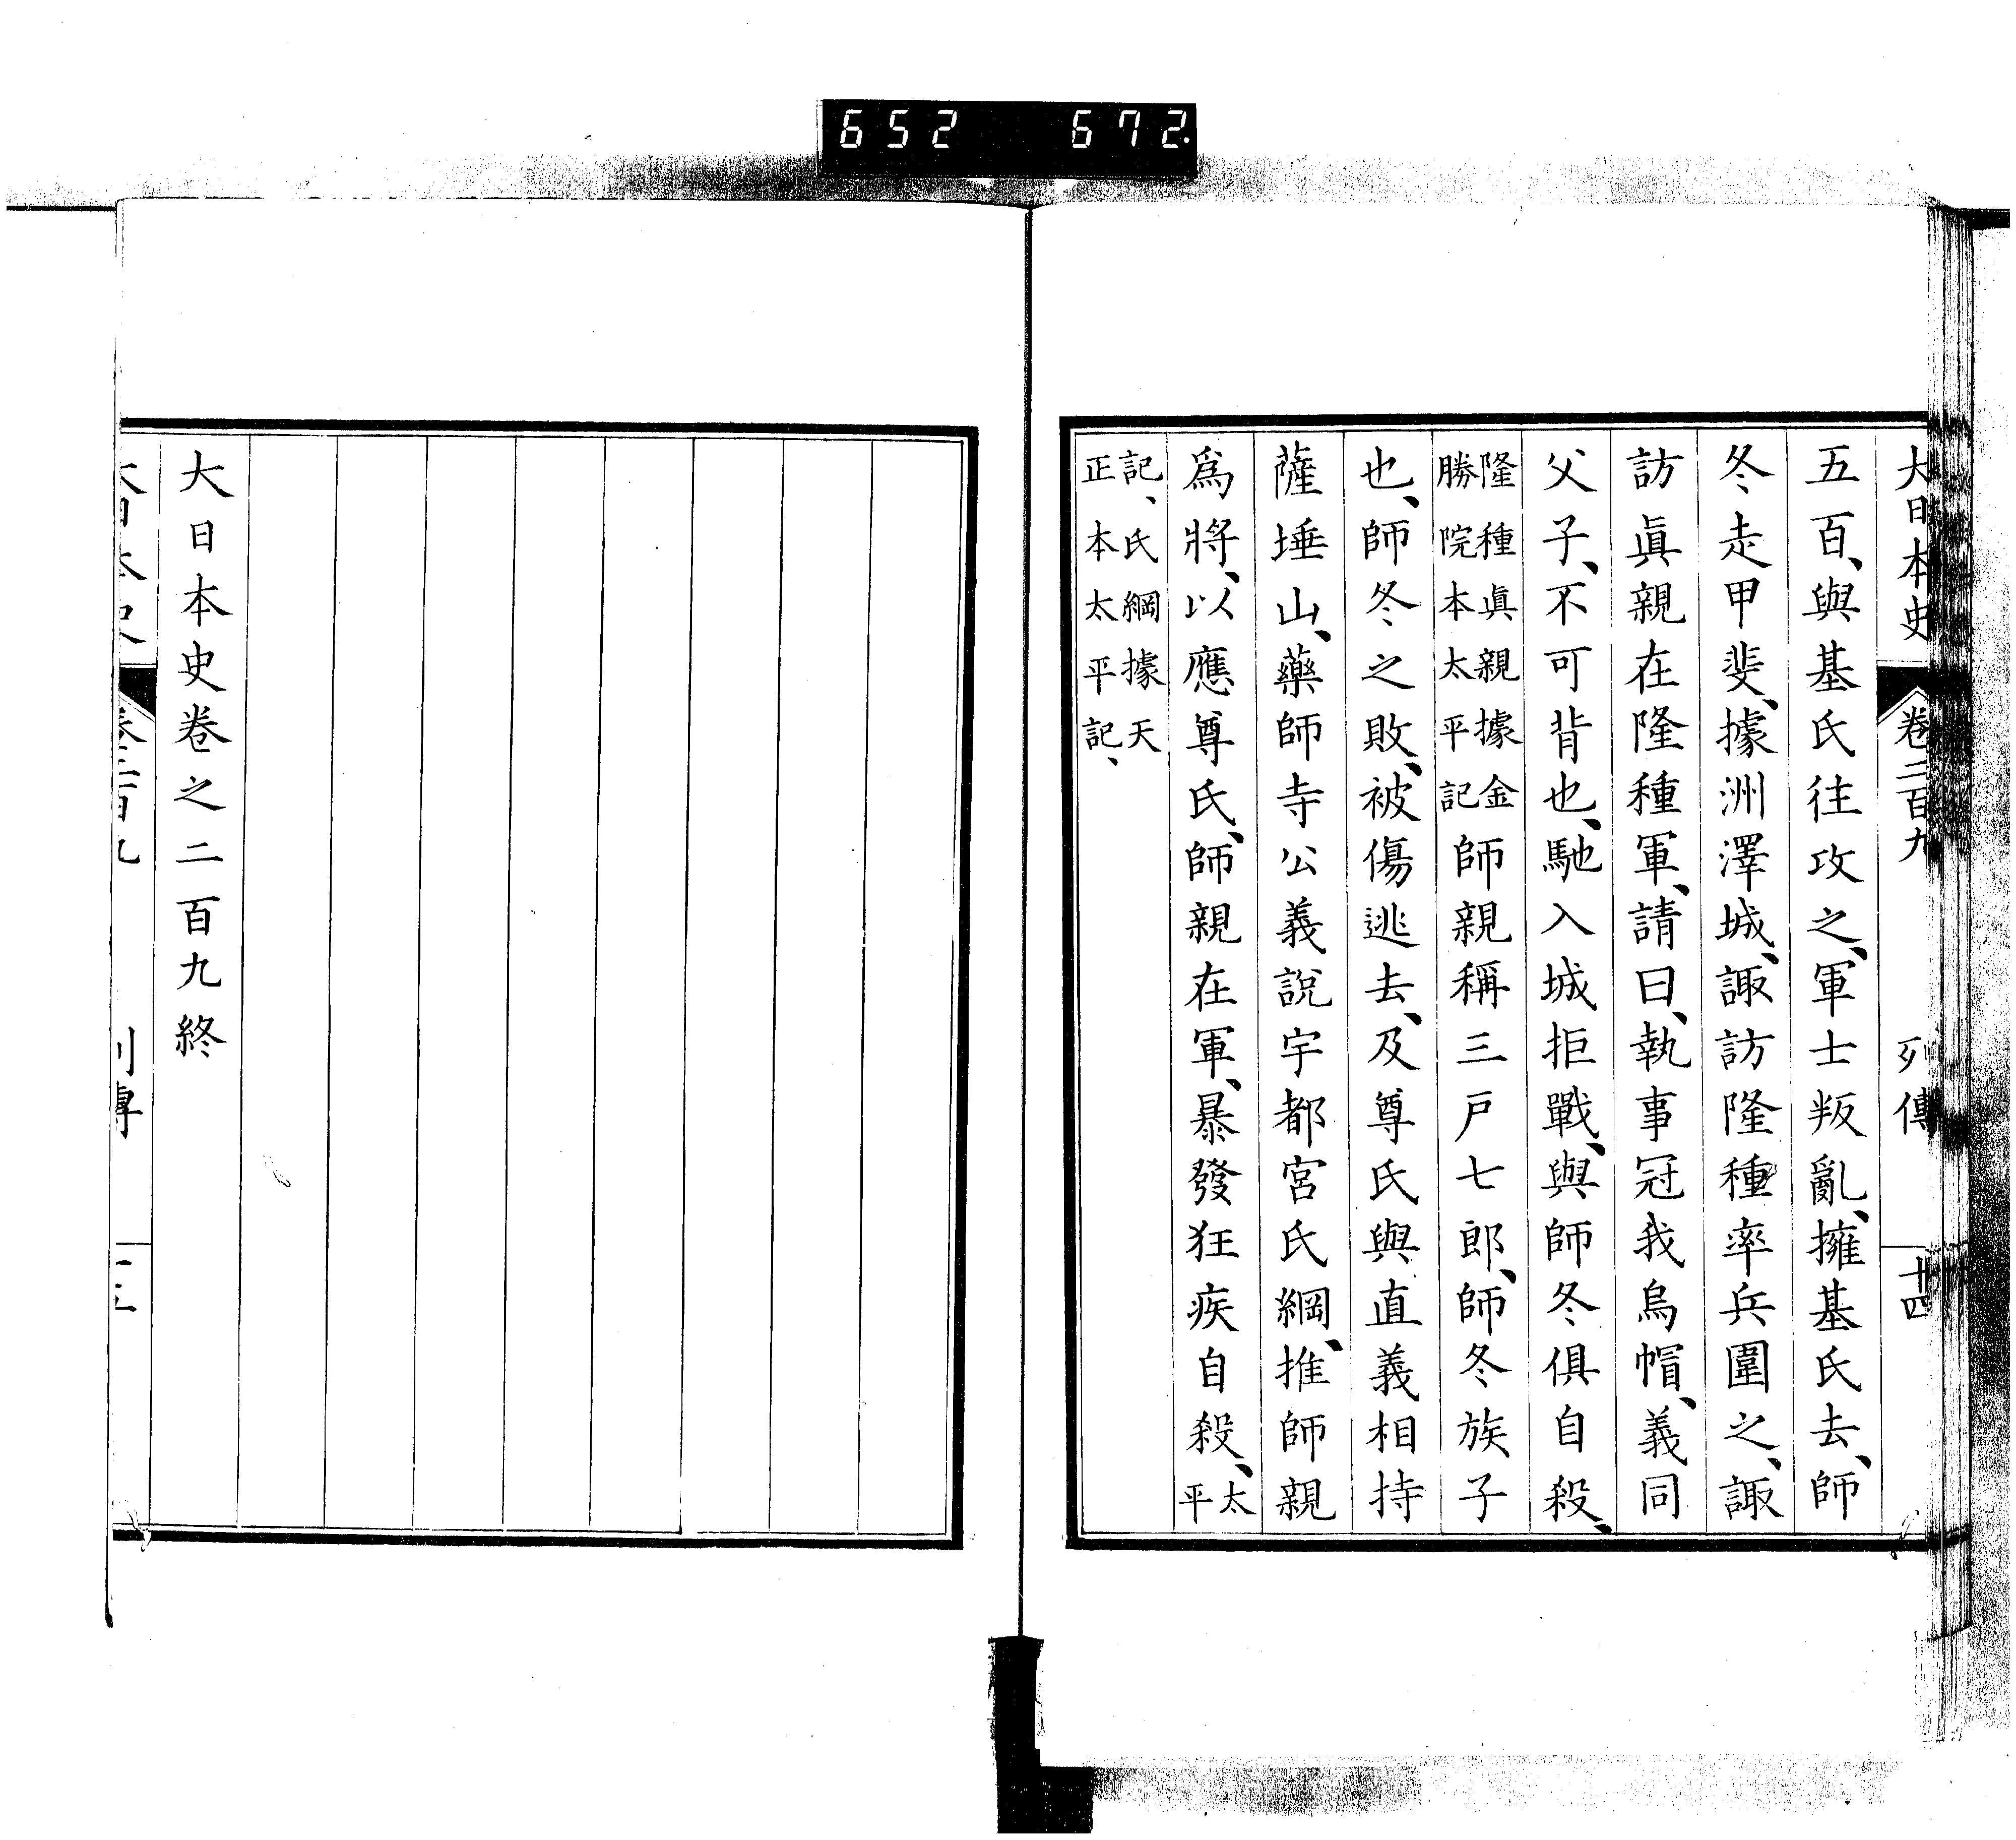 652 672.
大日本史 卷二百九 列傳 十四
五百、與基氏往攻之、軍士叛亂、擁基氏去、師
冬走甲斐、據洲澤城、諏訪隆種率兵圍之、諏
訪眞親在隆種軍、請曰、執事冠我烏帽、義同
父子、不可背也、馳入城拒戰、與師冬俱自殺、
隆種眞親據金
勝院本太平記
師親稱三戸七郎、師冬族子
也、師冬之敗、被傷逃去、及尊氏與直義相持
薩埵山、藥師寺公義說宇都宮氏綱、推師親
爲將、以應尊氏、師親在軍、暴發狂疾自殺、太
平
記、氏綱據天
正本太平記、
大日本史卷之二百九終
大日本史 卷二百九 列傳